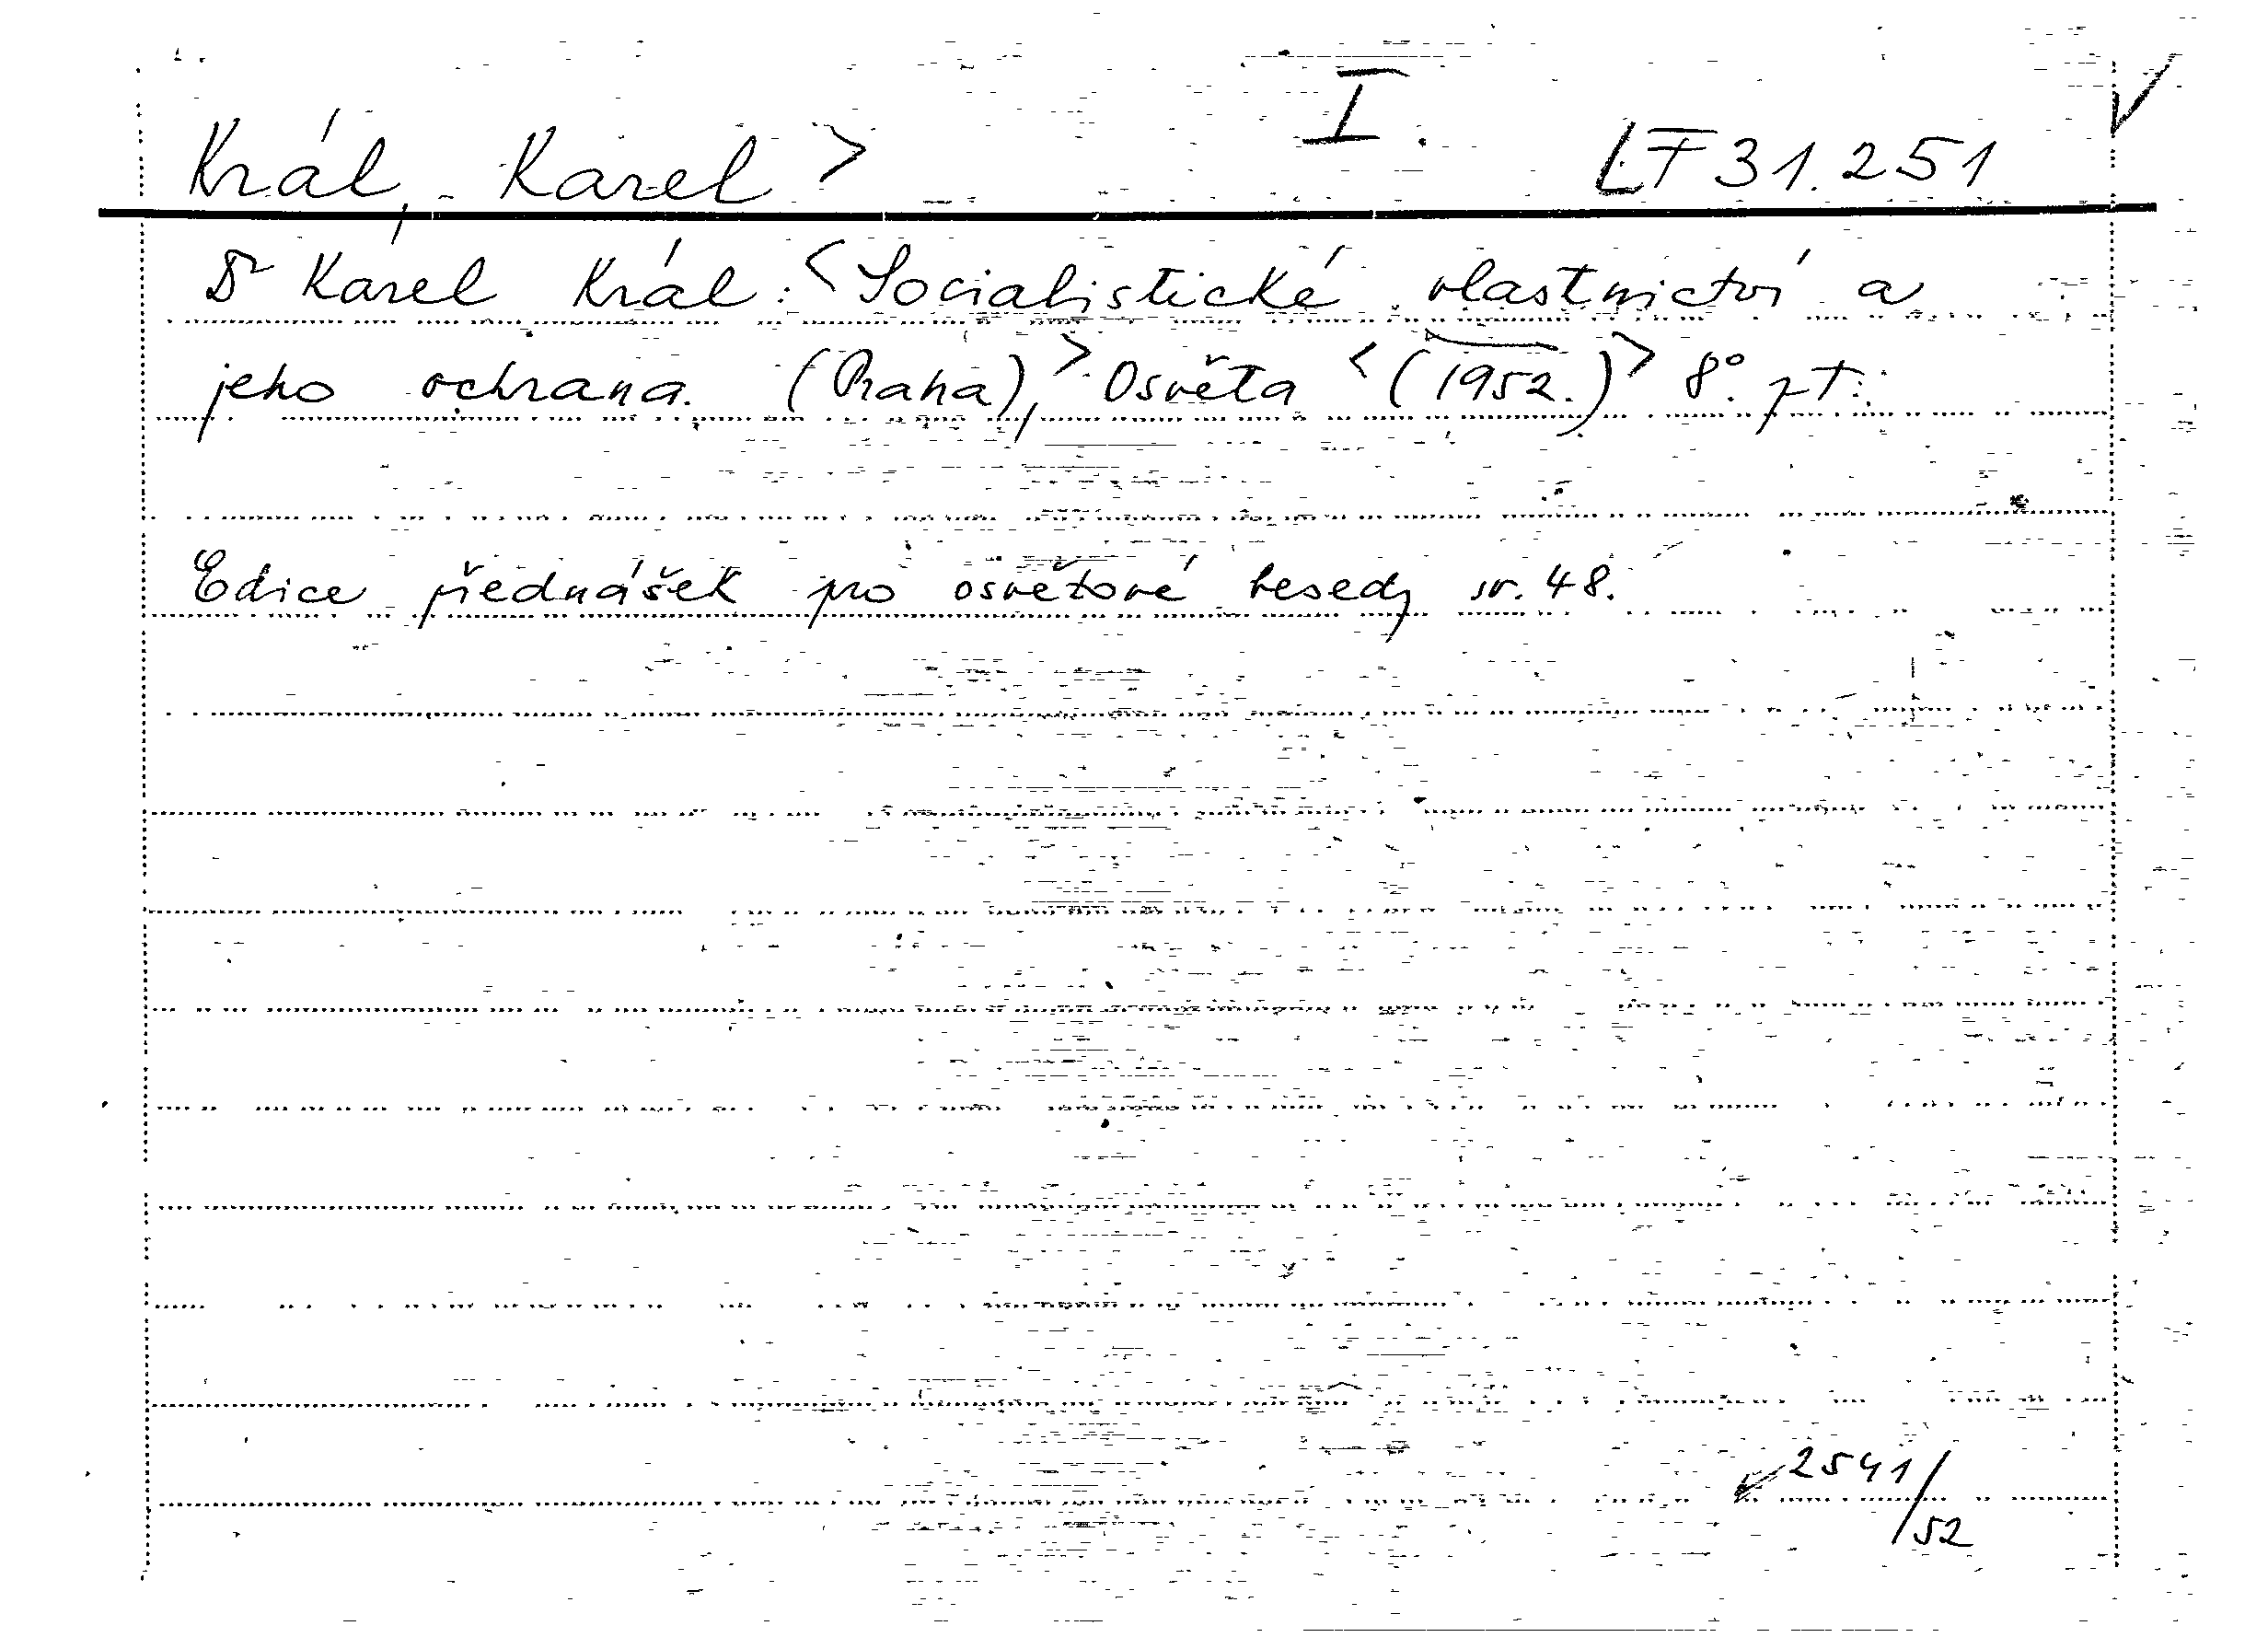 I.
Král, Karel > LF 31.251
Dr Karel Král: <Socialistické vlastnictví a
jeho ochrana. (Praha),> Osvěta <(1952.)> 8°.
Edice přednášek pro osvětové besedy sv. 48.
2541/52